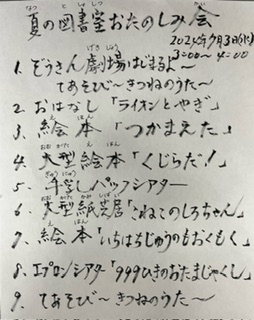 夏の図書室おたのしみ会
2024年7月3日(水)
3:00〜4:00
1. ぞうきん劇場はじまるよ〜
てあそび〜きつねのうた〜
2. おはなし「ライオンとやぎ」
3. 絵本「つかまえた」
4. 大型絵本「くじらだ!」
5. 牛乳パックシアター
6. 大型紙芝居「こねこのしろちゃん」
7. 絵本「いちはちじゅうのもおくもく」
8. エプロンシアター「999ひきのおたまじゃくし」
9. てあそび〜きつねのうた〜